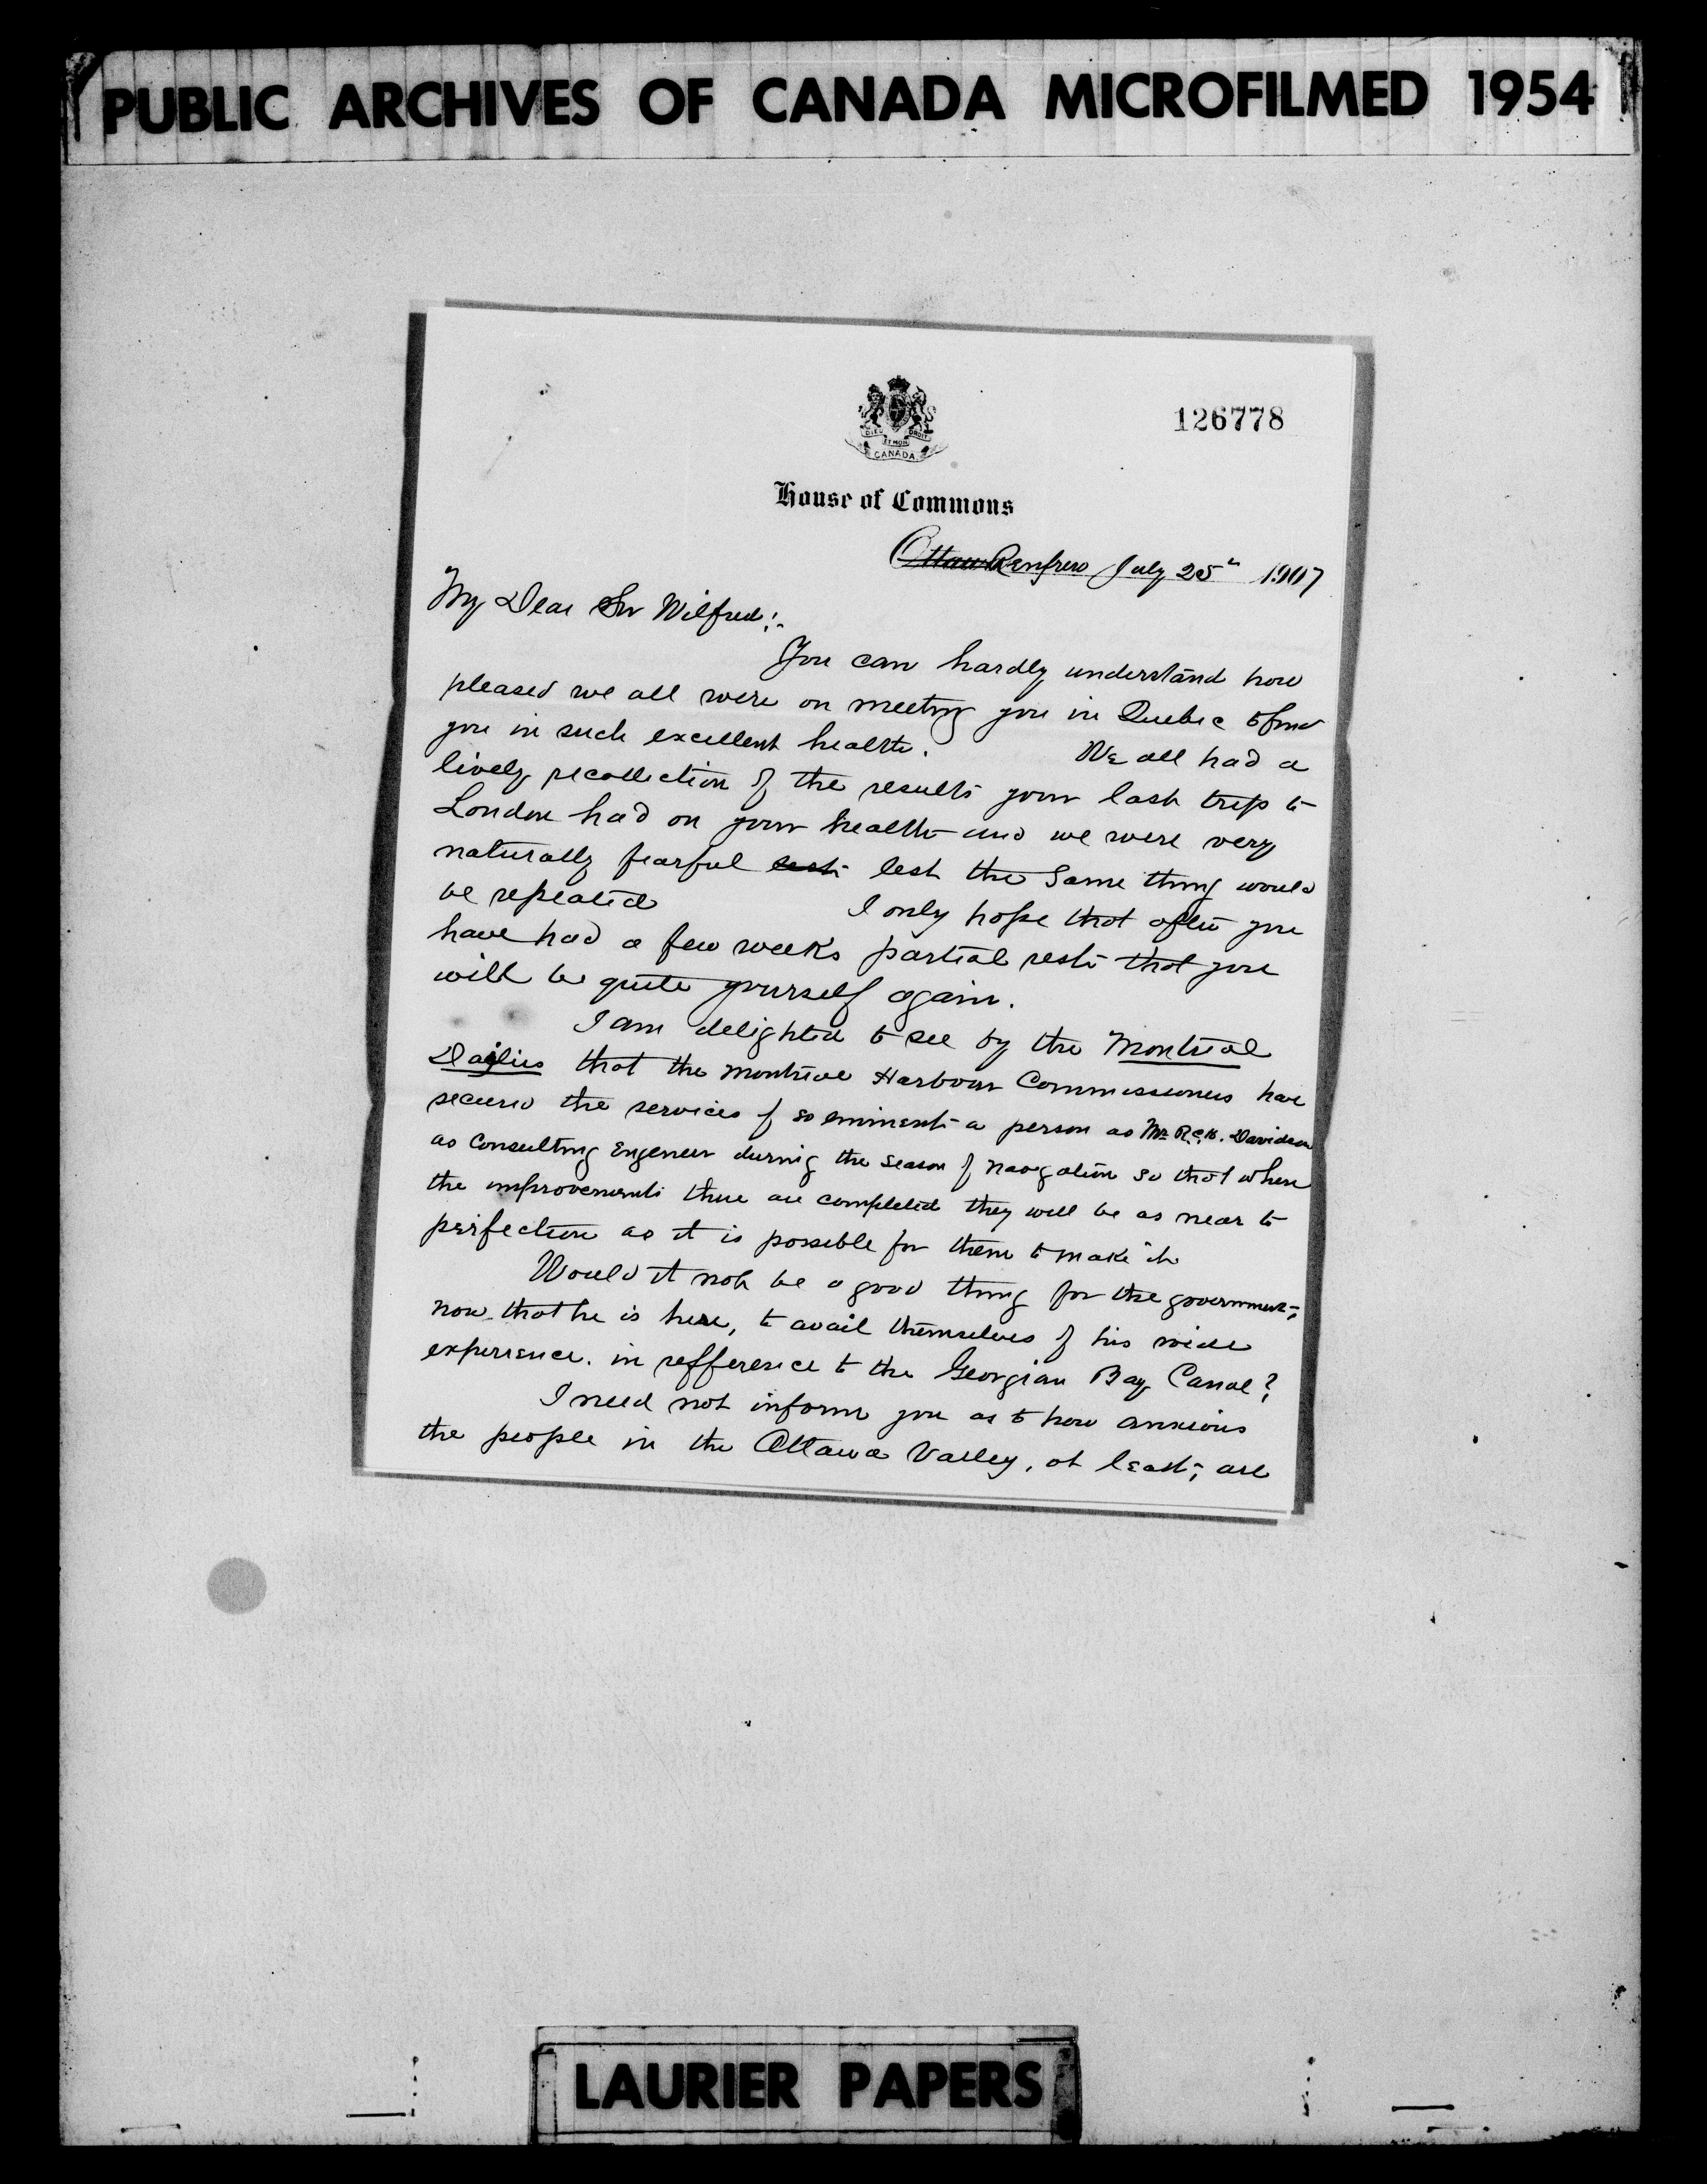 PUBLIC ARCHIVES OF CANADA MICROFILMED 1954
126778
DIEU ET MON DROIT
CANADA
House of Commons
Ottawa Renfrew July 25th 1907
My Dear Sir Wilfred:-
You can hardly understand how
pleased we all were on meeting you in Quebec to find
you in such excellent health. We all had a
lively recollection of the results your last trip to
London had on your health and we were very
naturally fearful lest the same thing would
be repeated I only hope that after you
have had a few weeks partial rest that you
will be quite yourself again.
I am delighted to see by the Montreal
Dailies that the Montreal Harbour Commissioners have
secured the services of so eminent a person as Mr. Davidson
as Consulting Engeneer during the season of navigation so that when
the improvements there are completed they will be as near to
perfection as it is possible for them to make it
Would it not be a good thing for the government,
now that he is here, to avail themselves of his wide
experience. in refference to the Georgian Bay Canal?
I need not inform you as to how anxious
the people in the Ottawa Valley, at least, are
LAURIER PAPERS